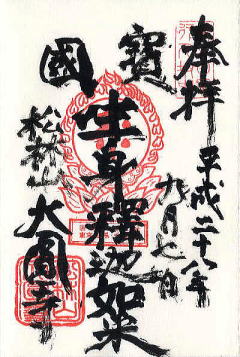 奉拝
平成二十八年
九月七日
國寳
生身釋迦如来
松林山
大圓寺